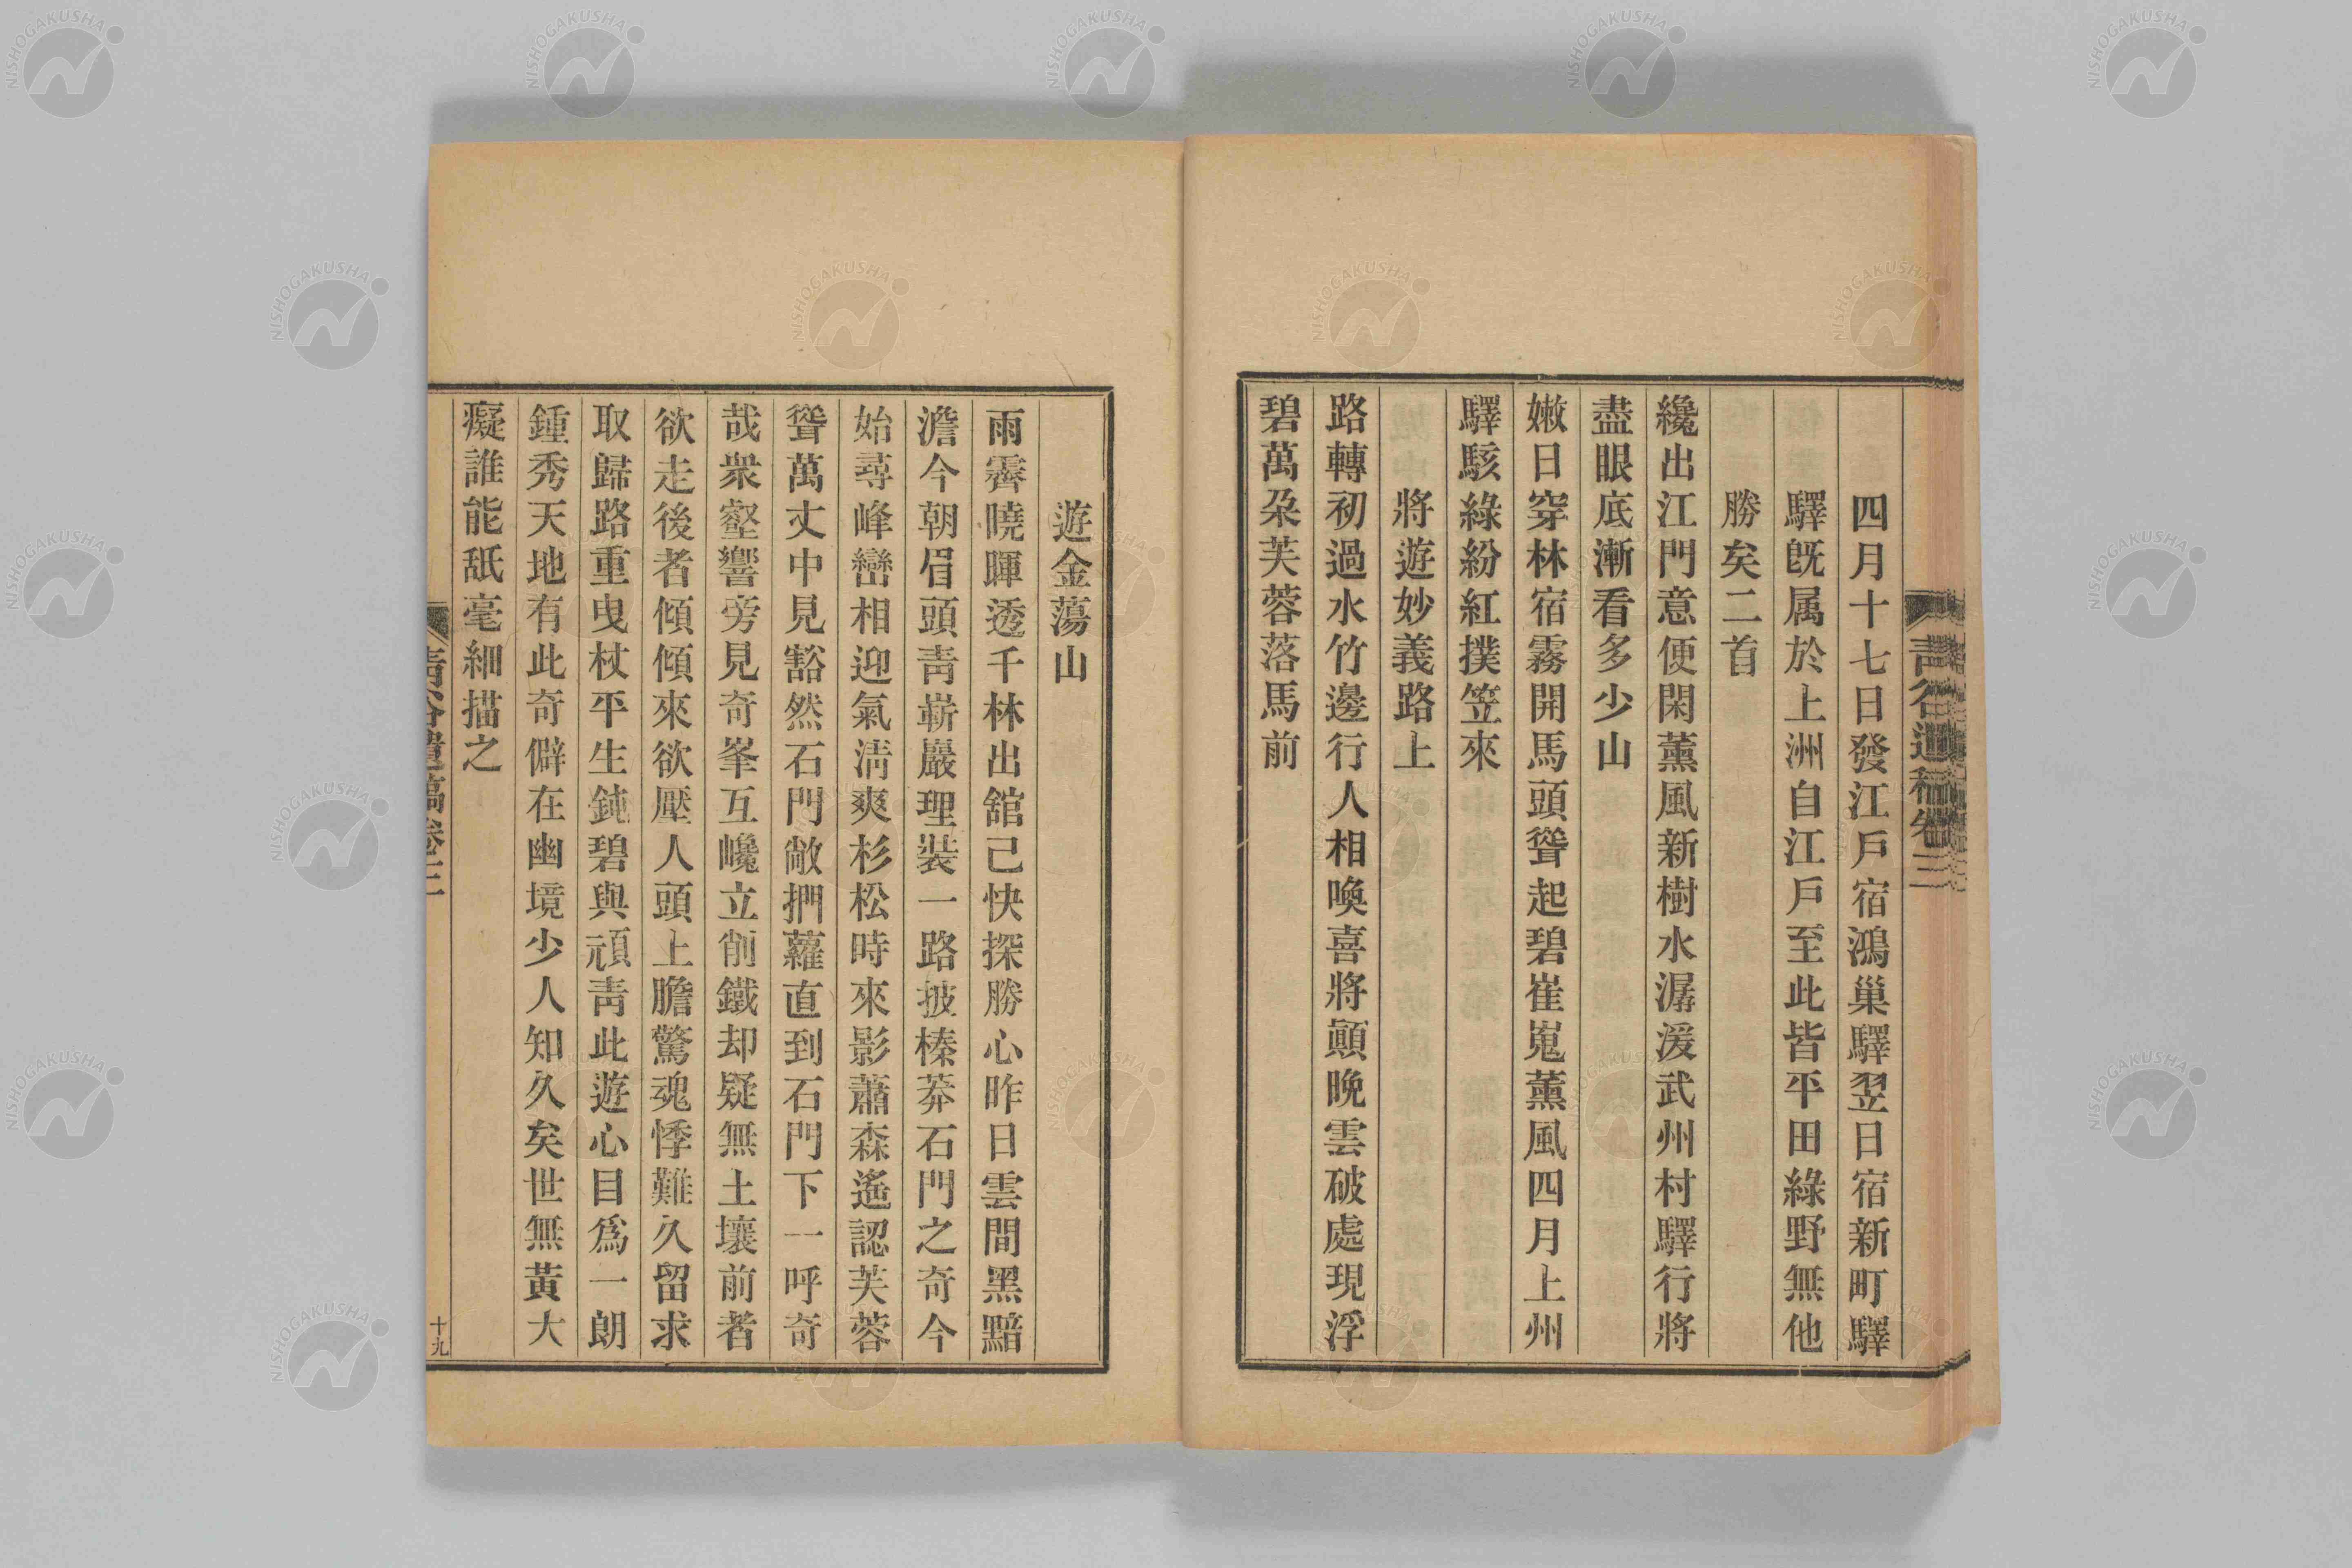 四月十七日發江戶宿鴻巢驛翌日宿新町驛
驛旣属於上洲自江戶至此皆平田綠野無他
勝矣二首
纔出江門意便閑薰風新樹水潺湲武州村驛行將
盡眼底漸看多少山
嫩日穿林宿霧開馬頭聳起碧崔嵬薰風四月上州
驛駭綠紛紅撲笠來
將遊妙義路上
路轉初過水竹邊行人相喚喜將顚晩雲破處現浮
碧萬朶芙蓉落馬前
靑谷遺稿卷三
遊金蕩山
雨霽曉暉透千林出舘已快探勝心昨日雲間黑黯
澹今朝眉頭靑嶄巖理裝一路披榛莽石門之奇今
始尋峰巒相迎氣淸爽杉松時來影蕭森遙認芙蓉
聳萬丈中見豁然石門敞捫蘿直到石門下一呼奇
哉衆壑響旁見奇峯互巉立削鐵却疑無土壤前者
欲走後者傾傾來欲壓人頭上膽驚魂悸難久留求
取歸路重曳杖平生鈍碧與頑靑此遊心目爲一朗
鍾秀天地有此奇僻在幽境少人知久矣世無黃大
癡誰能舐毫細描之
靑谷遺稿卷三
十九
NISHOGAKUSHA